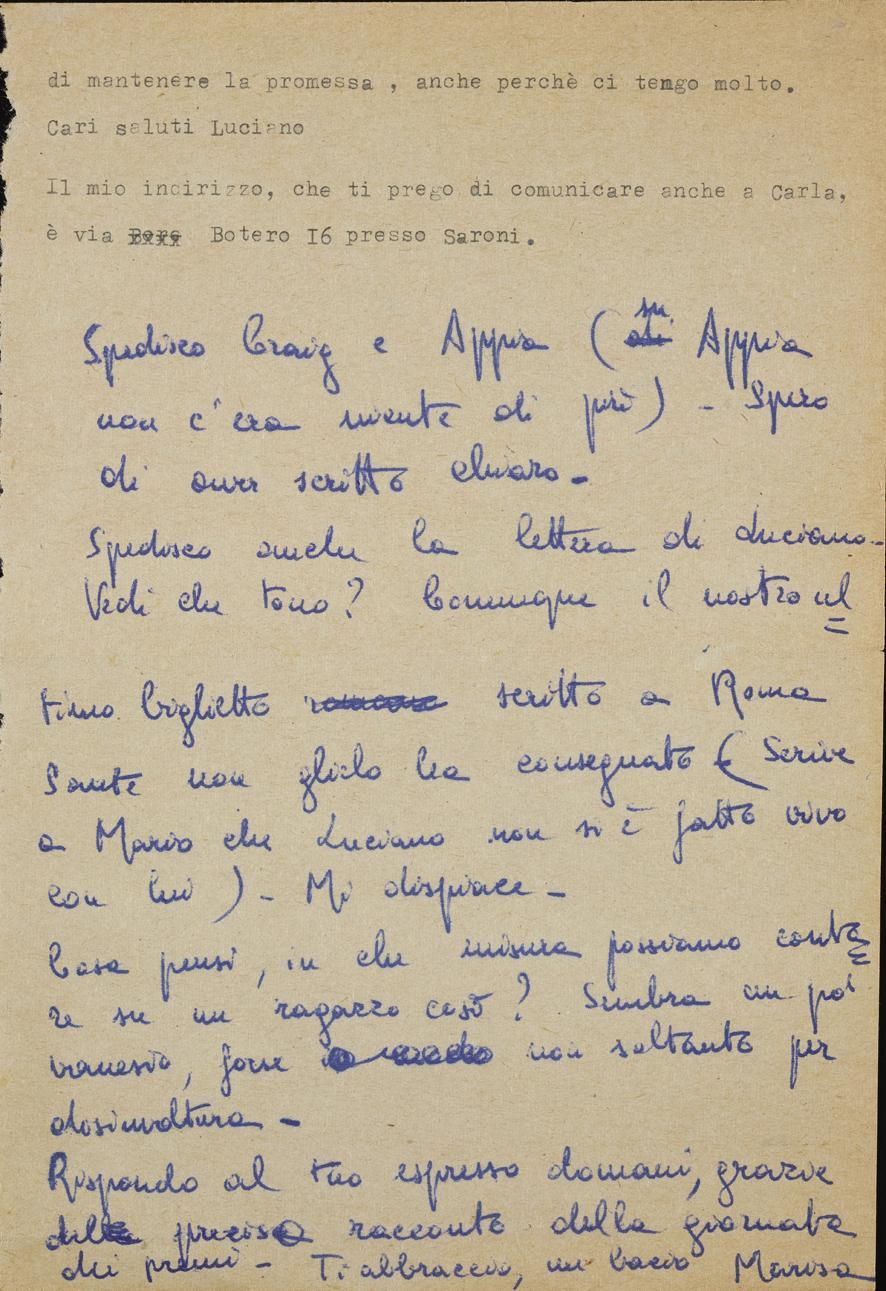 di mantenere la promessa , anche perchè ci tengo molto.
Cari saluti Luciano
Il mio indirizzo, che ti prego di comunicare anche a Carla,
è via Botero I6 presso Saroni.
Spedisco Craig e Appia (su Appia
non c'era niente di più) - Spero
di aver scritto chiaro -
Spedisco anche la lettera di Luciano -
Vedi che tono? Comunque il nostro ul
timo biglietto scritto a Roma
Sante non glielo ha consegnato (Scrive
a Mario che Luciano non si è fatto vivo
con lui) - Mi dispiace -
Cosa pensi, in che misura possiamo conta
re su un ragazzo così? Sembra un po'
vanesio, forse non soltanto per
disinvoltura -
Rispondo al tuo espresso domani, grazie
del preciso racconto della giornata
dei premi - Ti abbraccio, un bacio Marisa